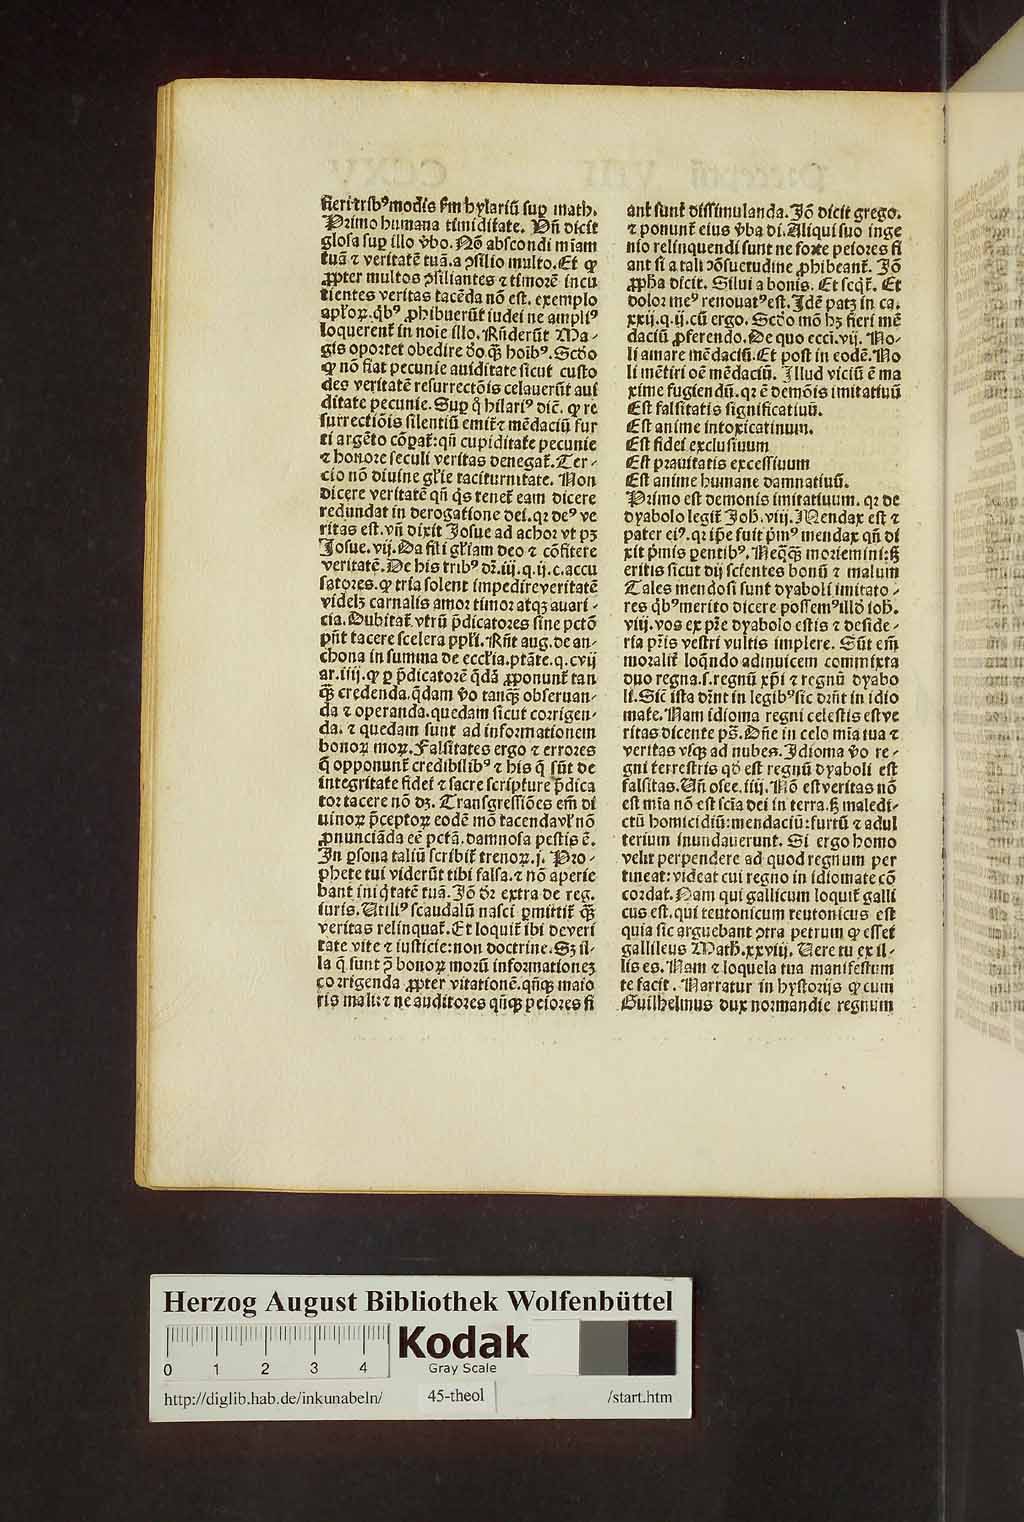 fieri trib⁹ modis ẜm hylariũ suꝑ math.
Primo humana timiditate. Uñ dicit
glosa suꝑ illo v̄bo. Nõ abscondi mĩam
tuã ⁊ veritatẽ tuã. a ꝯsilio multo. Et ꝙ
ꝓpter multos ꝯsiliantes ⁊ timorẽ incu
tientes veritas tacẽda nõ est. exemplo
apl̃oꝝ. qb̾⁹ ꝓhibuerũt iudei ne ampli⁹
loquerent̃ in noĩe illo. Rñderũt Ma-
gis oportet obedire deo. qȝ̃ hoib⁹. Scd̾o
ꝙ nõ fiat pecunie auiditate sicut custo
des veritatẽ resurrectõis celauerũt aui
ditate pecunie. Suꝑ q̃ hilari⁹ diẽ. ꝙ re
surrectiõis silentiũ emit̃ ⁊ mẽdaciũ fur
ti argẽto cõꝑat̃: qñ cupiditate pecunie
⁊ honore seculi veritas denegat̃. Ter-
cio nõ diuine gl̃ie taciturnitate. Non
dicere veritatẽ qñ q̃s tenet̃ eam dicere
redundat in derogatione dei. qꝛ de⁹ ve
ritas est. vñ dixit Josue ad achor vt pȝ
Josue. vij. Da fili gl̃iam deo ⁊ cõfitere
veritatẽ. De his trib⁹ dr̃. iij. q. ij. c. accu
satores. ꝙ tria solent impedireveritatẽ
videlȝ carnalis amor timor atqȝ auari-
cia. Dubitat̃ vtrũ p̃dicatores sine pctõ
pñt tacere scelera pp̃li. Rñt aug. de an-
chona in summa de eccl̃ia. ptãte. q. cvij
ar. iiij. ꝙ ꝑ p̃dicatorẽ q̃dã ꝓponunt̃ tan
qȝ̃ credenda. q̃dam v̄o tanqȝ̃ obseruan-
da ⁊ operanda. quedam sicut corrigen-
da. ⁊ quedam sunt ad informationem
bonoꝝ moꝝ. Falsitates ergo ⁊ errores
q̃ opponunt̃ credibilib⁹ ⁊ his q̃ sũt de
integritate fidei ⁊ sacre scripture p̃dica
tor tacere nõ dȝ. Transgressiões em̃ di
uinoꝝ p̃ceptoꝝ eodẽ mõ tacendavl̃ nõ
ꝓnunciãda eẽ pctã. damnosa pestis ẽ.
In ꝑsona taliũ scribit̃ trenoꝝ. j. Pro-
phete tui viderũt tibi falsa. ⁊ nõ aperie
bant iniq̃tatẽ tuã. Jõ dr̃ extra de reg.
iuris. Utili⁹ scaudalũ nasci ꝑmittit̃ qȝ̃
veritas relinquat̃. Et loquit̃ ibi deveri
tate vite ⁊ iusticie: non doctrine. Sȝ il-
la q̃ sunt p̃ bonoꝝ morũ informationeȝ
corrigenda ꝓpter vitationẽ. qñqȝ maio
ris mali: ⁊ ne auditores qñqȝ peiores fi
ant sunt dissimulanda. Jõ dicit grego.
⁊ ponunt̃ eius v̄ba di. Aliqui suo inge
nio relinquendi sunt ne forte peiores fi
ant si a tali ꝯõsuetudine ꝓhibeant̃. Jõ
ꝓph̃a dicit. Silui a bonis. Et seqt̃. Et
dolor me⁹ renouat⁹ est. Jdẽ patȝ in ca.
xxij. q. ij. cũ ergo. Scd̾o mõ hȝ fieri mẽ
daciũ ꝓferendo. De quo ecci. vij. No-
li amare mẽdaciũ. Et post in eodẽ. No
li mẽtiri oẽ mẽdaciũ. Illud viciũ ẽ ma
xime fugiendũ. qꝛ ẽ demõis imitatiuũ
Est falsitatis significatiuũ.
Est anime intoxicatinum.
Est fidei exclusiuum
Est prauitatis excessiuum
Est anime humane damnatiuũ.
Primo est demonis imitatiuum. qꝛ de
dyabolo legit̃ Joh. viij. Mendax est ⁊
pater ei⁹. qꝛ ip̃e fuit p̃m⁹ mendax qñ di
xit p̃mis ꝑentib⁹. Neqȝqȝ moriemini: sȝ
eritis sicut dij scientes bonũ ⁊ malum
Tales mendosi sunt dyaboli imitato-
res qb̾⁹ merito dicere possem⁹ illd̾ ioh.
viij. vos ex pr̃e dyabolo estis ⁊ deside-
ria pr̃is vestri vultis implere. Sũt em̃
moralit̃ loqñdo adinuicem commixta
duo regna. s. regnũ xp̃i ⁊ regnũ dyabo
li. Sic̃ ista dr̃nt in legib⁹ sic dr̃nt in idio
mate. Nam idioma regni celestis est ve
ritas dicente ps̃. Dñe in celo mĩa tua ⁊
veritas vsqȝ ad nubes. Idioma v̄o re-
gni terrestris qd̾ est regnũ dyaboli est
falsitas. Uñ osee. iiij. Nõ est veritas nõ
est mĩa nõ est scĩa dei in terra. sȝ maledi-
ctũ homicidiũ: mendaciũ: furtũ ⁊ adul
terium inundauerunt. Si ergo homo
velit perpendere ad quod regnum per
tineat: videat cui regno in idiomate cõ
cordat. Nam qui gallicum loquit̃ galli
cus est. qui teutonicum teutonicus est
quia sic arguebant ꝯtra petrum ꝙ esset
gallileus Math. xxviij. Uere tu ex il-
lis es. Nam ⁊ loquela tua manifestum
te facit. Narratur in hystorijs ꝙ cum
Guilhelmus dux normandie regnum
Herzog August Bibliothek Wolfenbüttel
Kodak
Gray Scale
0 1 2 3 4
http://diglib.hab.de/inkunabeln/ 45-theol /start.htm